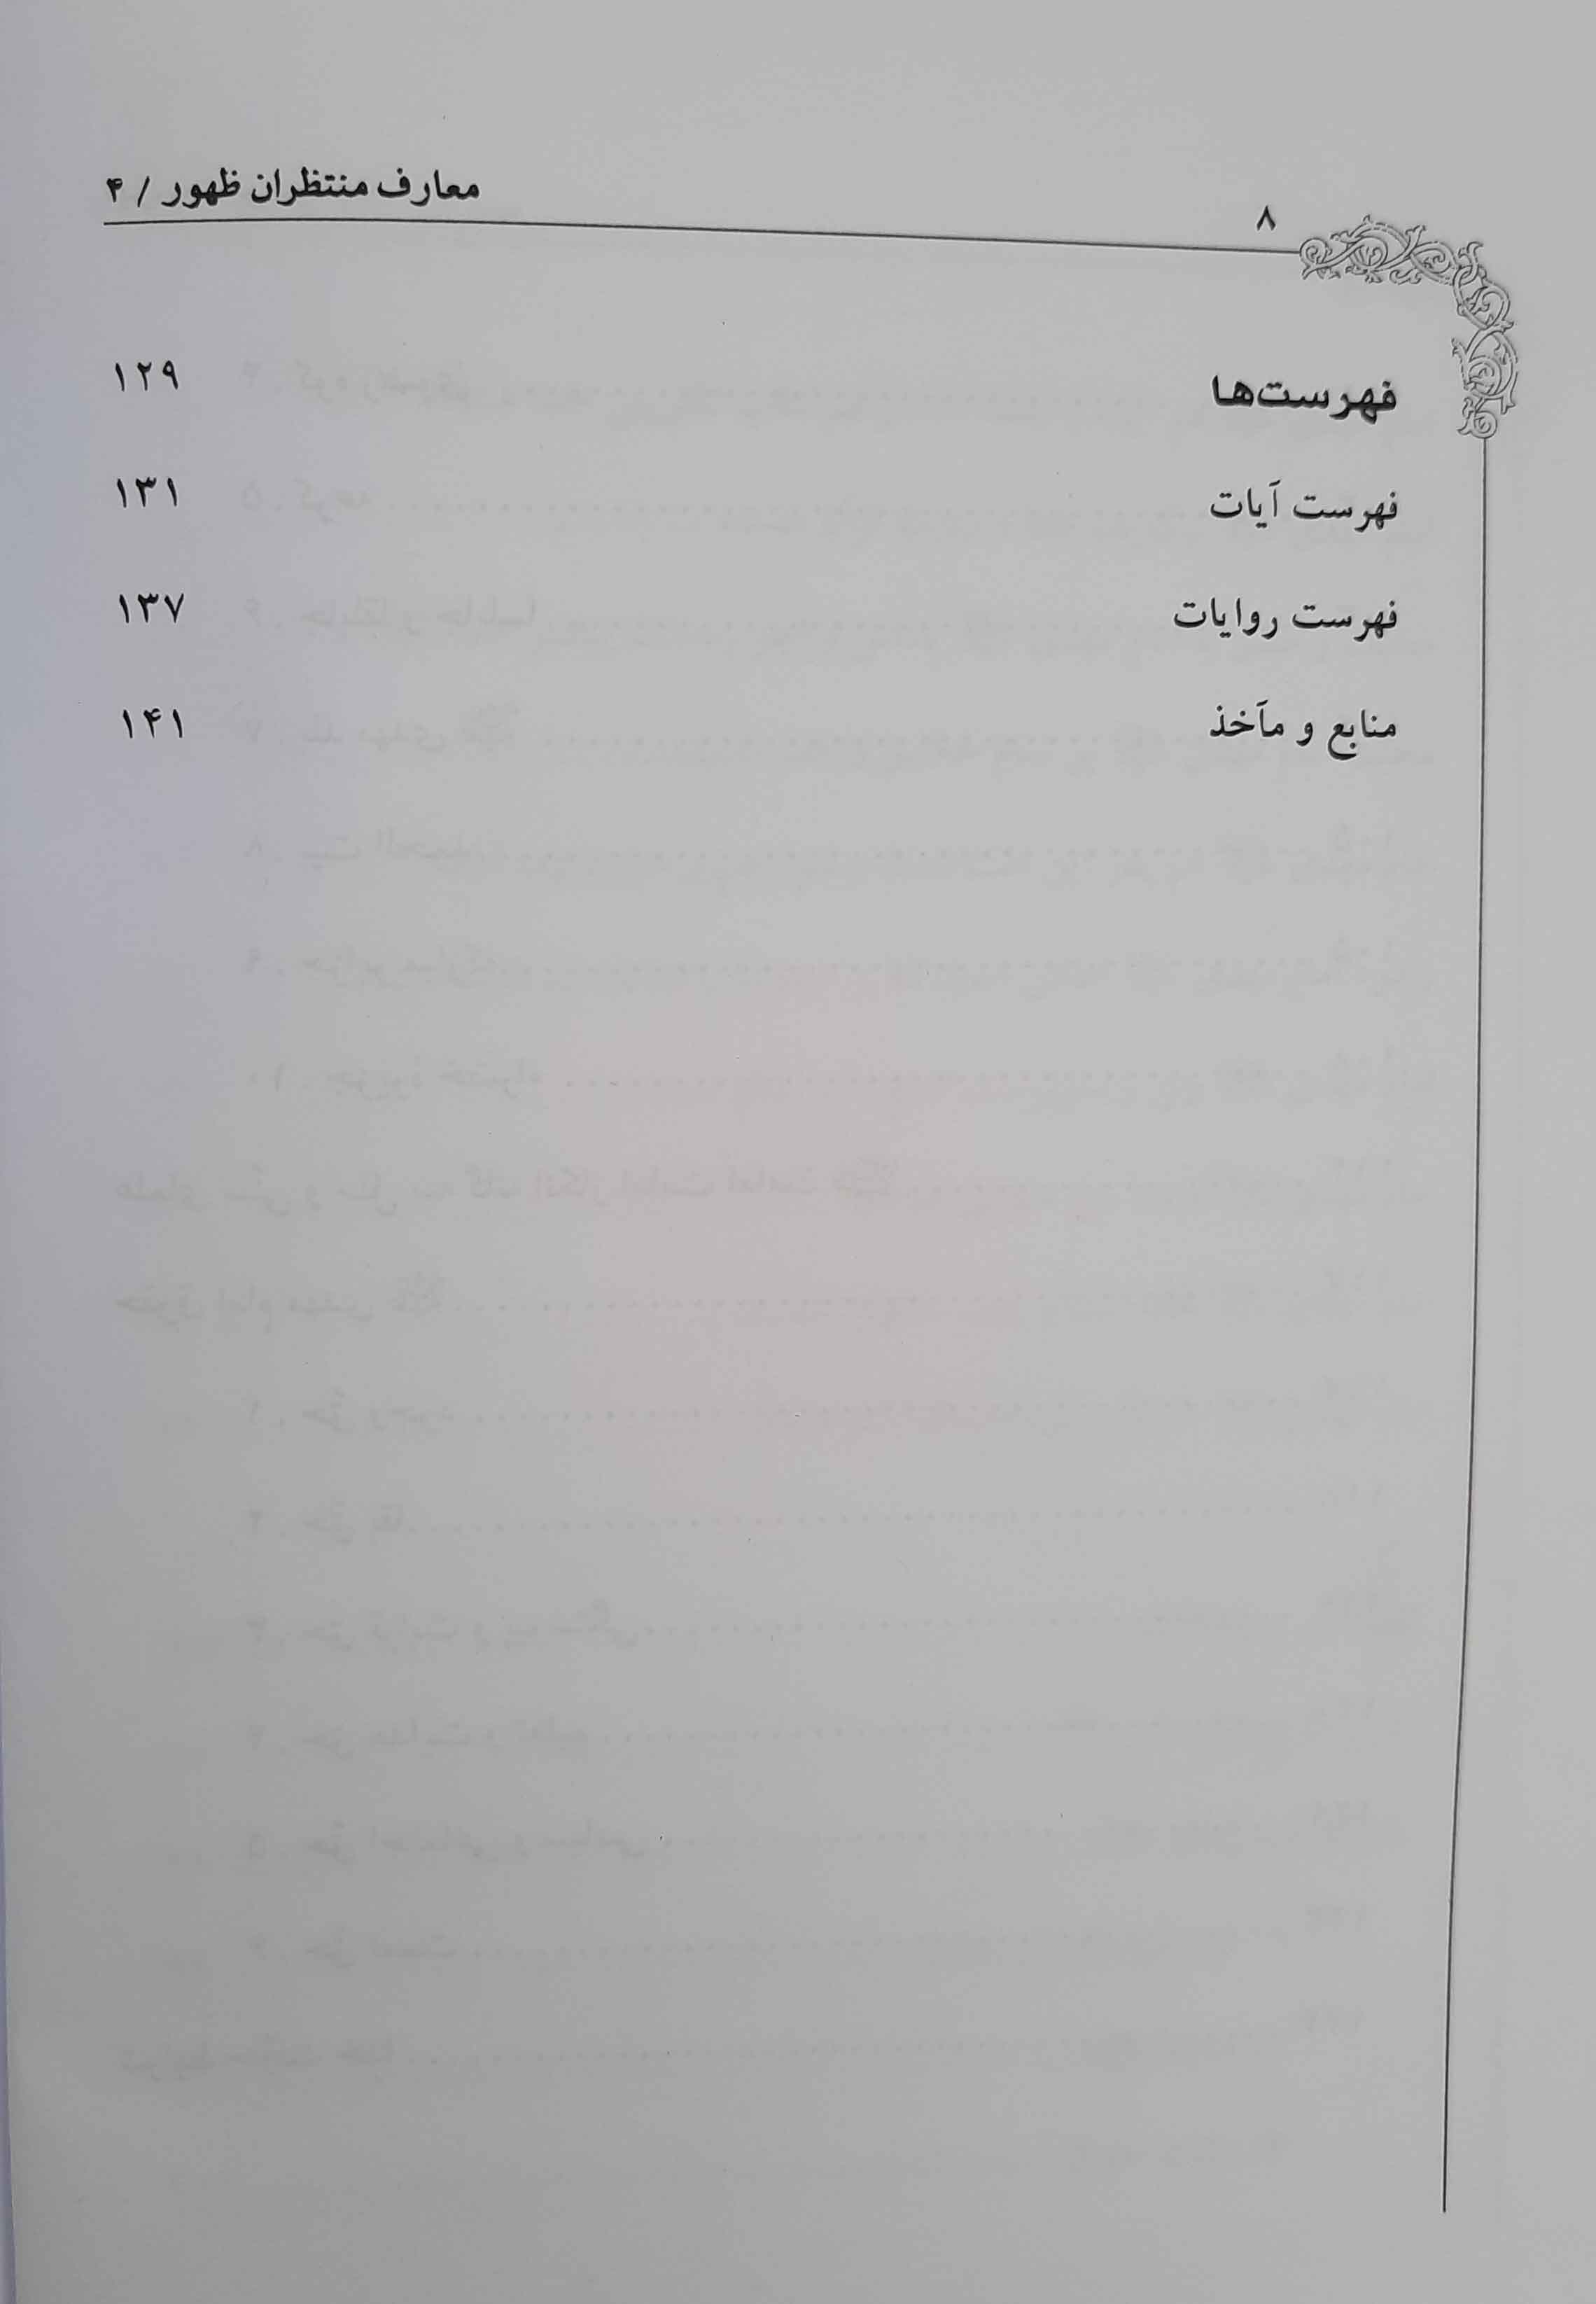 ۸ معارف منتظران ظهور / ۴
فهرست‌ها ۱۲۹
فهرست آیات ۱۳۱
فهرست روایات ۱۳۷
منابع و مآخذ ۱۴۱